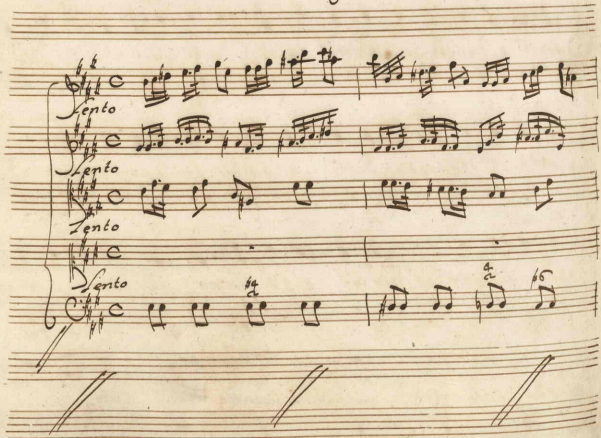 Lento
Lento
Lento
Lento